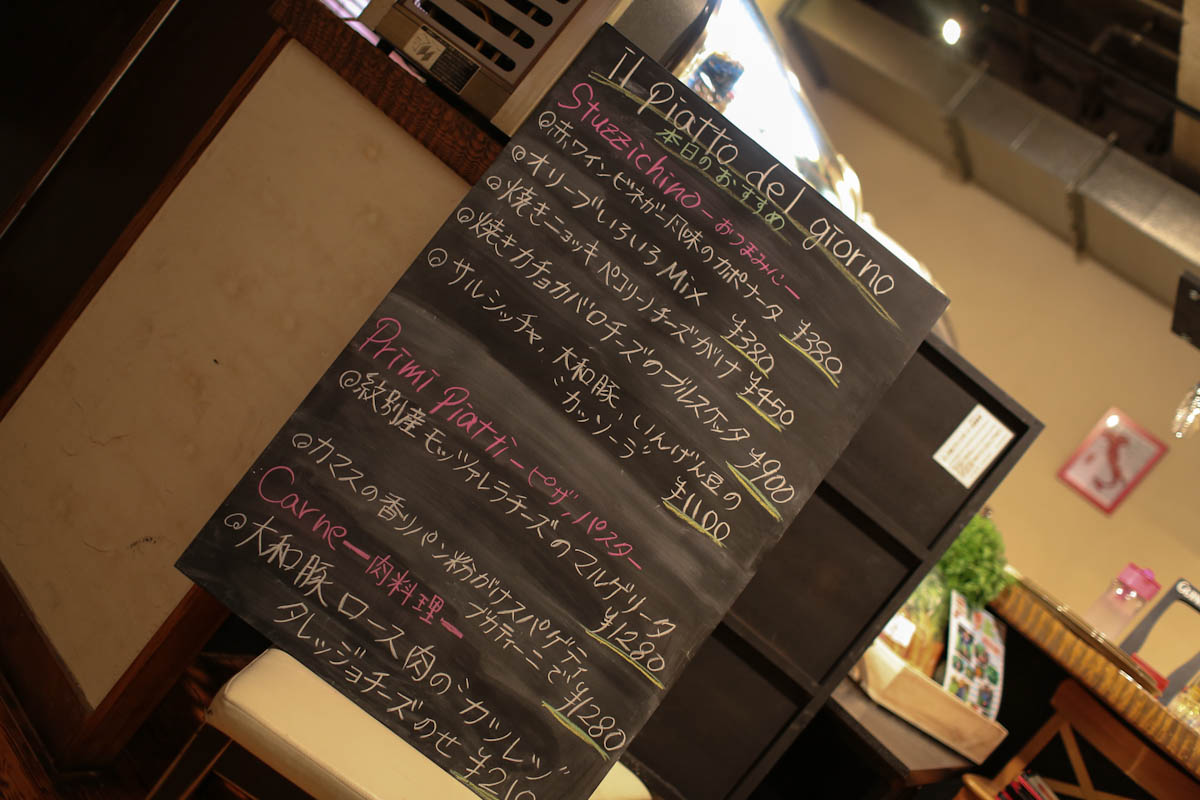 Il Piatto del giorno
本日のおすすめ
Stuzzichino ーおつまみー
◎赤ワインビネガー風味のカポナータ ¥380
◎オリーブいろいろMix ¥380
◎焼きニョッキ ペコリーノチーズがけ ¥450
◎焼きカチョカバロチーズのブルスケッタ ¥900
◎サルシッチャ、大和豚、いんげん豆の
カッソーラ ¥1100
Primi Piatti ーピザ,パスター
◎紋別産モッツァレラチーズのマルゲリータ
¥1280
◎カマスの香りパン粉がけスパゲティ
ブカティーニで ¥1280
Carne ー肉料理ー
◎大和豚ロース肉のシカツレツ
タレッジョチーズのせ ¥210